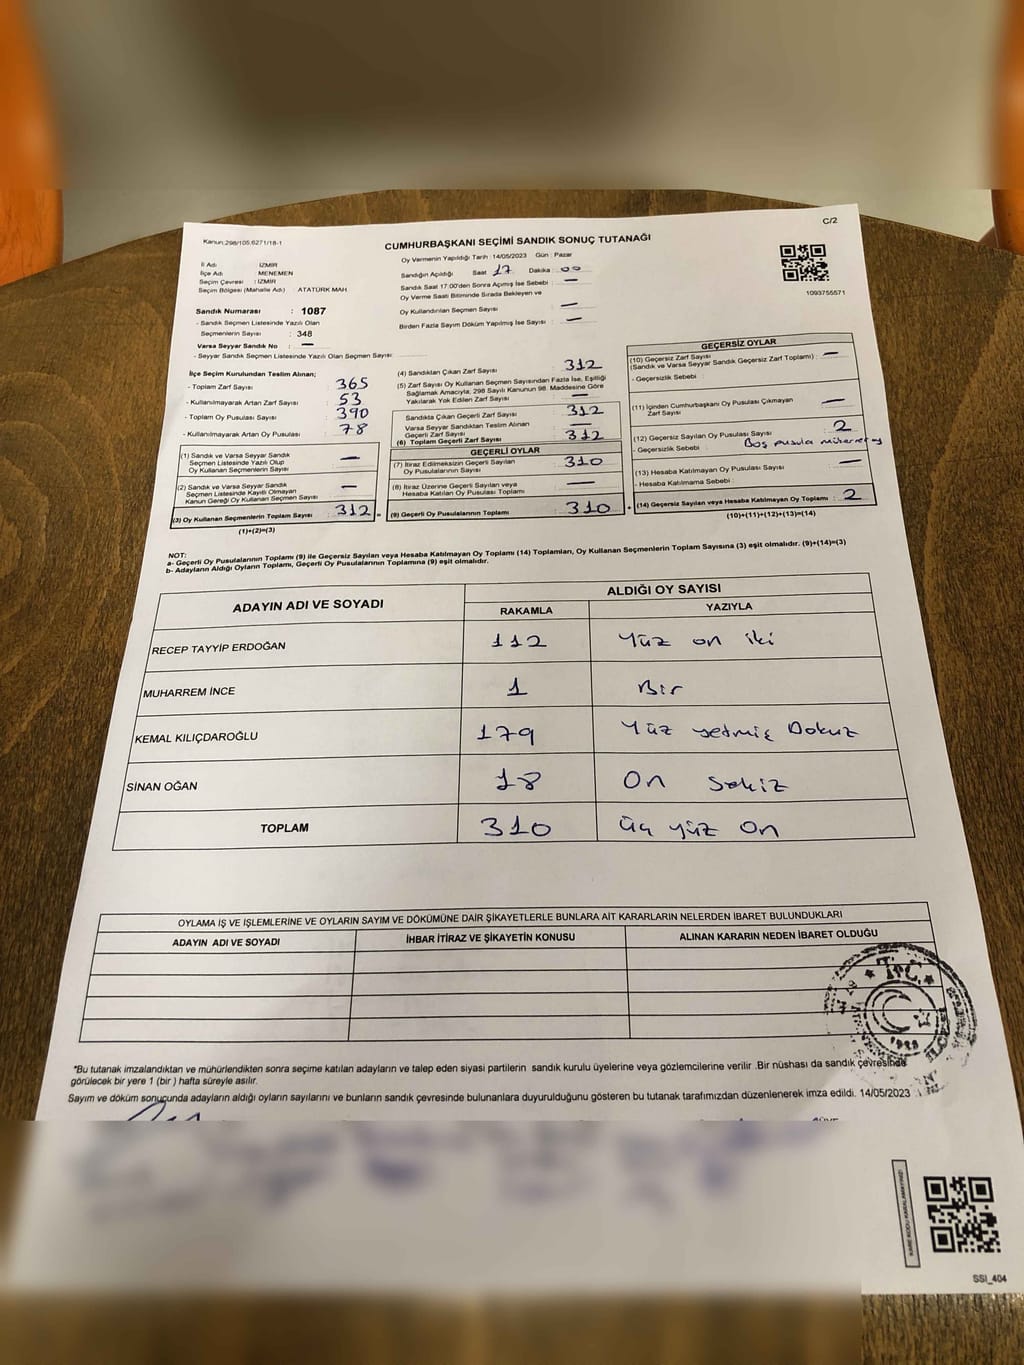 C/2
Kanun:298/105;6271/18-1
CUMHURBAŞKANI SEÇİMİ SANDIK SONUÇ TUTANAĞI
İl Adı : İZMİR
İlçe Adı : MENEMEN
Seçim Çevresi : İZMİR
Seçim Bölgesi (Mahalle Adı) : ATATÜRK MAH.
Sandık Numarası : 1087
- Sandık Seçmen Listesinde Yazılı Olan
Seçmenlerin Sayısı : 348
Varsa Seyyar Sandık No : —
- Seyyar Sandık Seçmen Listesinde Yazılı Olan Seçmen Sayısı:
Oy Vermenin Yapıldığı Tarih : 14/05/2023 Gün : Pazar
Sandığın Açıldığı Saat : 17 Dakika : 00
Sandık Saat 17:00'den Sonra Açılmış İse Sebebi : —
Oy Verme Saati Bitiminde Sırada Bekleyen ve
Oy Kullandırılan Seçmen Sayısı : —
Birden Fazla Sayım Döküm Yapılmış İse Sayısı : —
1093755571
İlçe Seçim Kurulundan Teslim Alınan;
- Toplam Zarf Sayısı : 365
- Kullanılmayarak Artan Zarf Sayısı : 53
- Toplam Oy Pusulası Sayısı : 390
- Kullanılmayarak Artan Oy Pusulası : 78
(1) Sandık ve Varsa Seyyar Sandık
Seçmen Listesinde Yazılı Olup
Oy Kullanan Seçmenlerin Sayısı : —
(2) Sandık ve Varsa Seyyar Sandık
Seçmen Listesinde Kayıtlı Olmayan
Kanun Gereği Oy Kullanan Seçmen Sayısı : —
(3) Oy Kullanan Seçmenlerin Toplam Sayısı : 312
(1)+(2)=(3)
(4) Sandıktan Çıkan Zarf Sayısı : 312
(5) Zarf Sayısı Oy Kullanan Seçmen Sayısından Fazla İse, Eşitliği
Sağlamak Amacıyla; 298 Sayılı Kanunun 98. Maddesine Göre
Yakılarak Yok Edilen Zarf Sayısı : —
Sandıkta Çıkan Geçerli Zarf Sayısı : 312
Varsa Seyyar Sandıktan Teslim Alınan
Geçerli Zarf Sayısı : —
(6) Toplam Geçerli Zarf Sayısı : 312
GEÇERLİ OYLAR
(7) İtiraz Edilmeksizin Geçerli Sayılan
Oy Pusulalarının Sayısı : 310
(8) İtiraz Üzerine Geçerli Sayılan veya
Hesaba Katılan Oy Pusulaları Toplamı : —
(9) Geçerli Oy Pusulalarının Toplamı : 310
GEÇERSİZ OYLAR
(10) Geçersiz Zarf Sayısı : —
(Sandık ve Varsa Seyyar Sandık Geçersiz Zarf Toplamı)
- Geçersizlik Sebebi :
(11) İçinden Cumhurbaşkanı Oy Pusulası Çıkmayan
Zarf Sayısı : —
(12) Geçersiz Sayılan Oy Pusulası Sayısı : 2
- Geçersizlik Sebebi : Boş pusula
(13) Hesaba Katılmayan Oy Pusulası Sayısı : —
- Hesaba Katılmama Sebebi :
(14) Geçersiz Sayılan veya Hesaba Katılmayan Oy Toplamı : 2
(10)+(11)+(12)+(13)=(14)
NOT:
a- Geçerli Oy Pusulalarının Toplamı (9) ile Geçersiz Sayılan veya Hesaba Katılmayan Oy Toplamı (14) Toplamları, Oy Kullanan Seçmenlerin Toplam Sayısına (3) eşit olmalıdır. (9)+(14)=(3)
b- Adayların Aldığı Oyların Toplamı, Geçerli Oy Pusulalarının Toplamına (9) eşit olmalıdır.
ADAYIN ADI VE SOYADI ALDIĞI OY SAYISI
RAKAMLA YAZIYLA
RECEP TAYYİP ERDOĞAN 112 Yüz on iki
MUHARREM İNCE 1 Bir
KEMAL KILIÇDAROĞLU 179 Yüz yetmiş Dokuz
SİNAN OĞAN 18 On sekiz
TOPLAM 310 Üç yüz On
OYLAMA İŞ VE İŞLEMLERİNE VE OYLARIN SAYIM VE DÖKÜMÜNE DAİR ŞİKAYETLERLE BUNLARA AİT KARARLARIN NELERDEN İBARET BULUNDUKLARI
ADAYIN ADI VE SOYADI İHBAR İTİRAZ VE ŞİKAYETİN KONUSU ALINAN KARARIN NEDEN İBARET OLDUĞU
T.C.
*Bu tutanak imzalandıktan ve mühürlendikten sonra seçime katılan adayların ve talep eden siyasi partilerin sandık kurulu üyelerine veya gözlemcilerine verilir .Bir nüshası da sandık çevresinde
görülecek bir yere 1 (bir ) hafta süreyle asılır.
Sayım ve döküm sonucunda adayların aldığı oyların sayılarını ve bunların sandık çevresinde bulunanlara duyurulduğunu gösteren bu tutanak tarafımızdan düzenlenerek imza edildi. 14/05/2023
KARE KODU KARALAMAYINIZ!
SSI_404